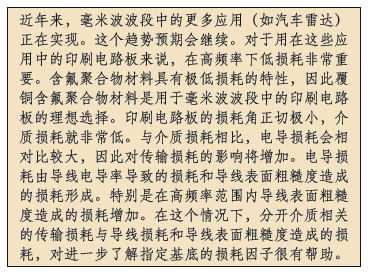 近年来，毫米波波段中的更多应用（如汽车雷达）
正在实现。这个趋势预期会继续。对于用在这些应
用中的印刷电路板来说，在高频率下低损耗非常重
要。含氟聚合物材料具有极低损耗的特性，因此覆
铜含氟聚合物材料是用于毫米波波段中的印刷电路
板的理想选择。印刷电路板的损耗角正切极小，介
质损耗就非常低。与介质损耗相比，电导损耗会相
对比较大，因此对传输损耗的影响将增加。电导损
耗由导线电导率导致的损耗和导线表面粗糙度造成
的损耗形成。特别是在高频率范围内导线表面粗糙
度造成的损耗增加。在这个情况下，分开介质相关
的传输损耗与导线损耗和导线表面粗糙度造成的损
耗，对进一步了解指定基底的损耗因子很有帮助。